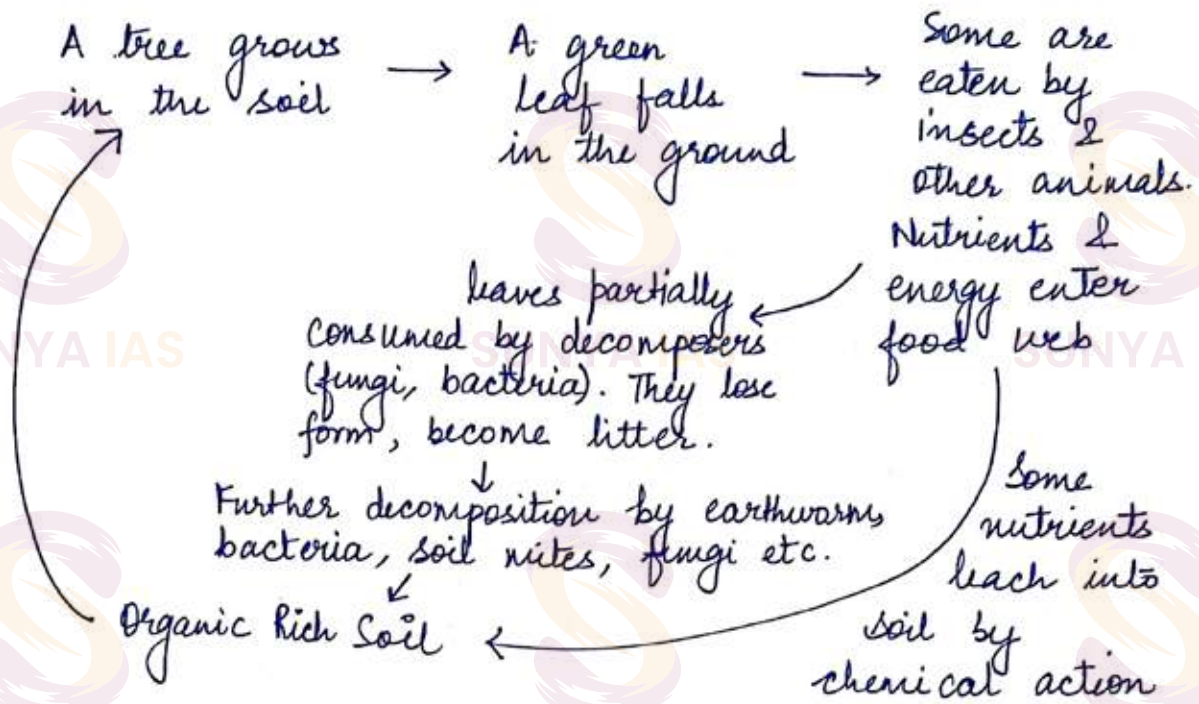 A tree grows
in the soil
A green
leaf falls
in the ground
Some are
eaten by
insects &
other animals.
Nutrients &
energy enter
food web
leaves partially
consumed by decomposers
(fungi, bacteria). They lose
form, become litter.
Further decomposition by earthworms,
bacteria, soil mites, fungi etc.
Organic Rich Soil
Some
nutrients
leach into
soil by
chemical action
NYA IAS
SONYA IAS
SONYA